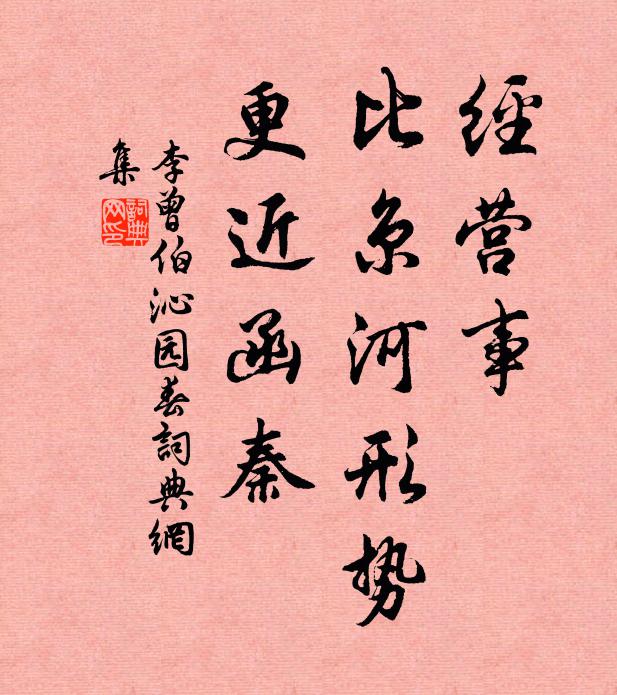 經营事
比京河形势
更近函秦
李曾伯沁园春詞典網
集
詞典网印